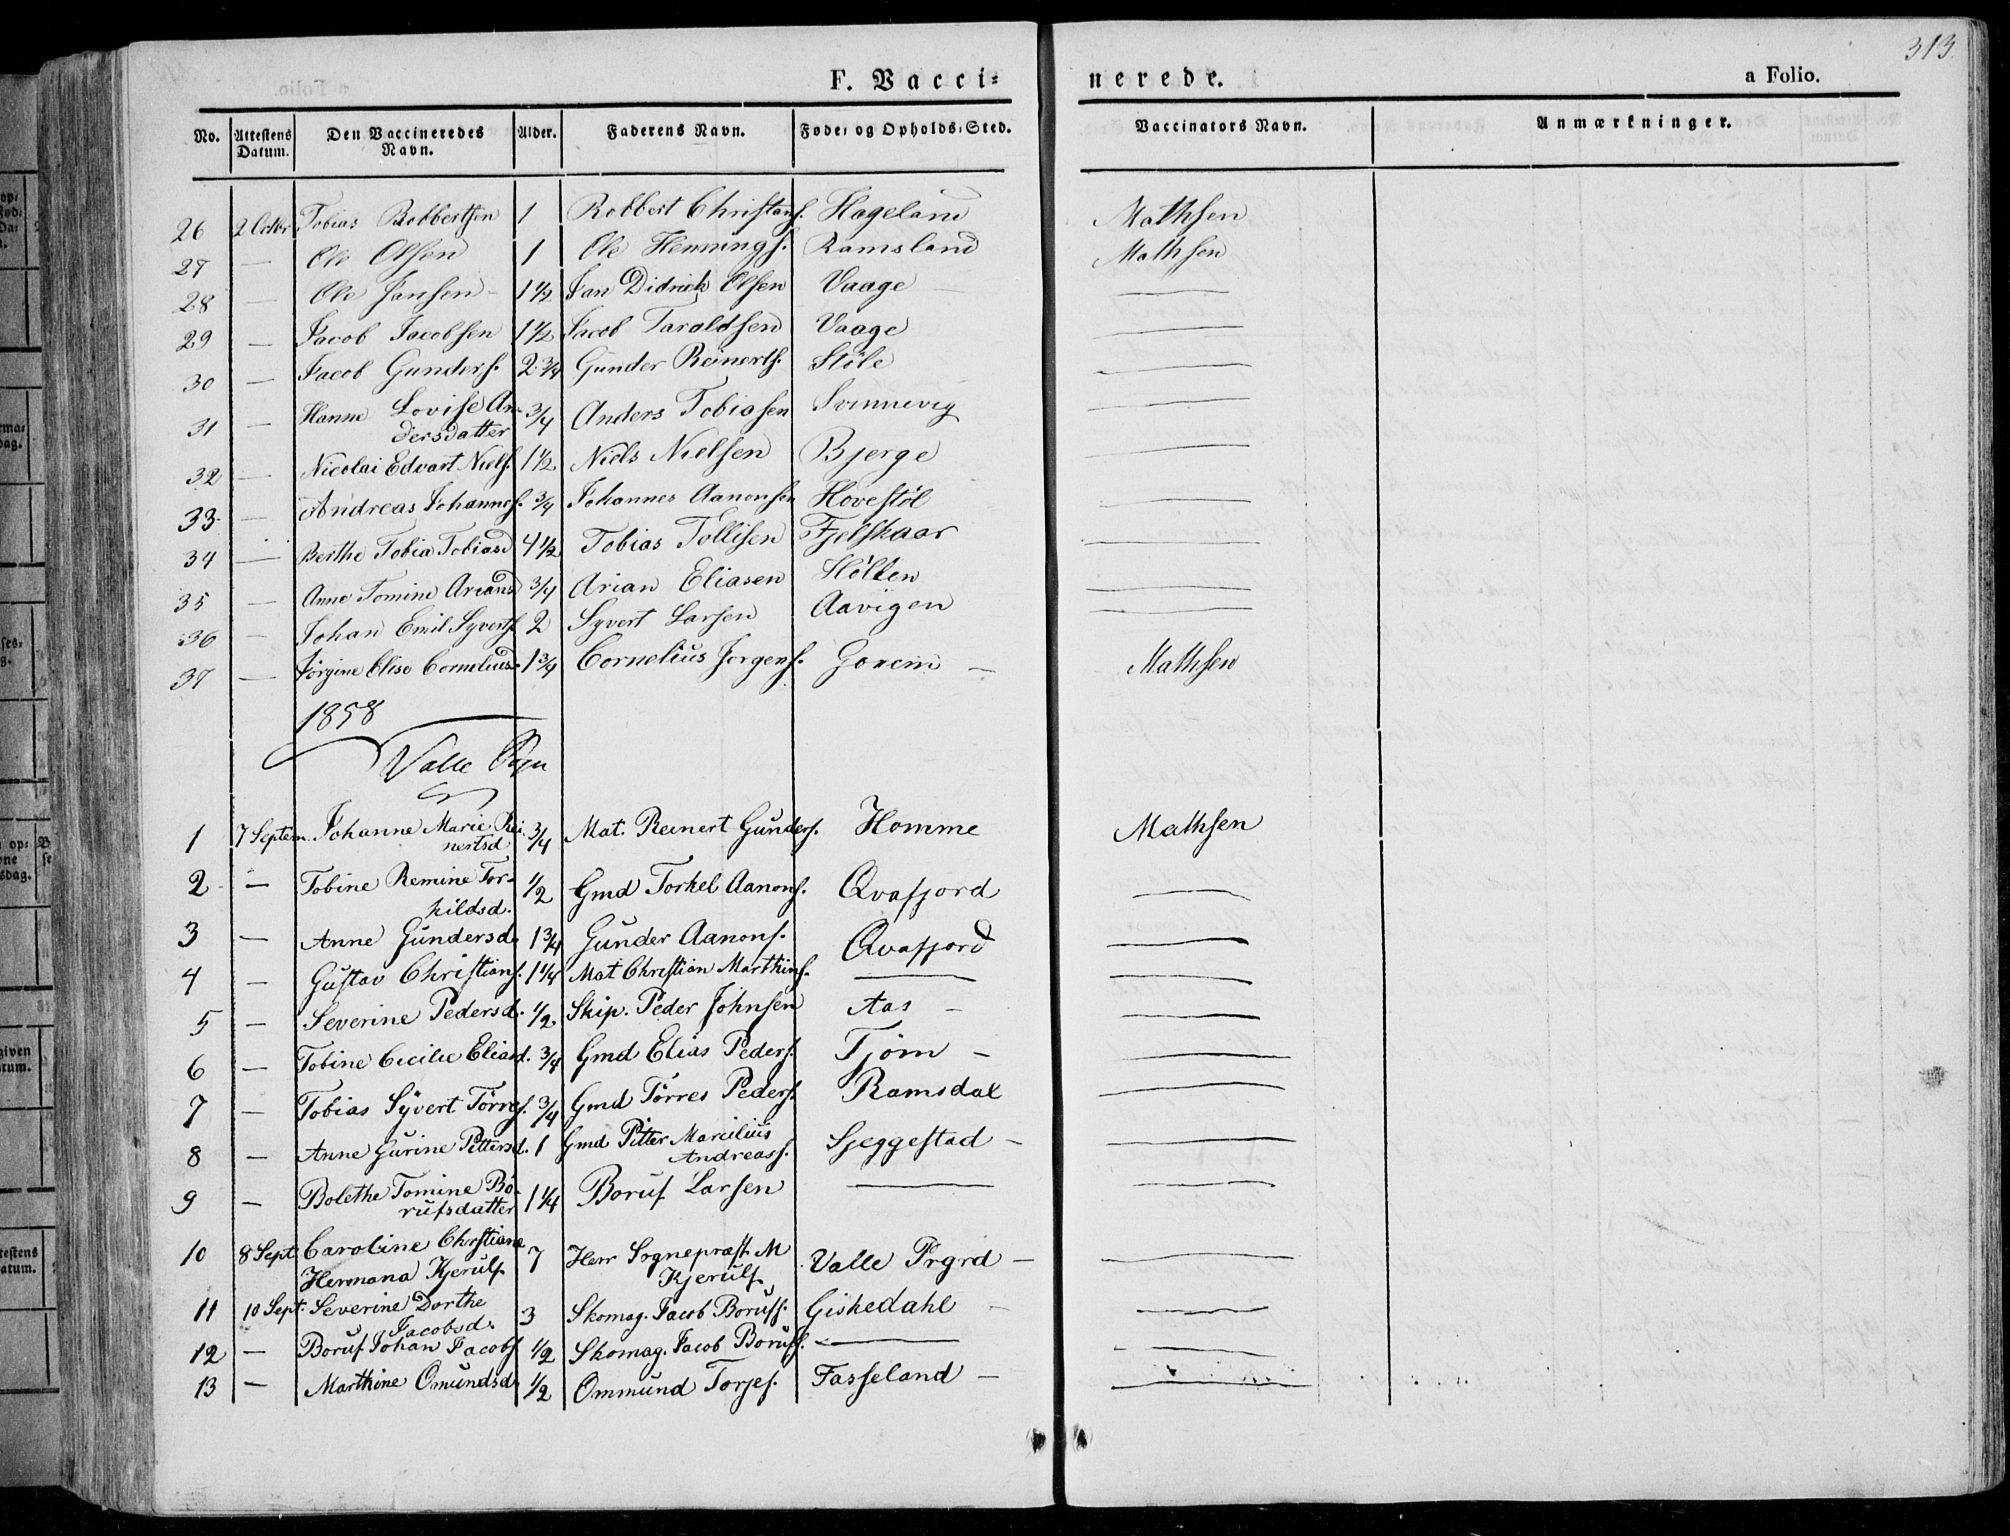 313.
F. Vacci=
nerede.
a Folio.
No. Attestens Datum. Den Vaccineredes Navn. Alder. Faderens Navn. Føde= og Opholds=Sted. Vaccinators Navn. Anmærkninger.
26 2 Octbr Tobias Robbertsen 1 Robbert Christans. Hageland Mathsen
27 — Ole Olsen 1 Ole Hennings. Ramsland Mathsen
28 — Ole Jansen 1½ Jan Didrick Olsen Vaage —
29 — Jacob Jacobsen 1½ Jacob Taraldsen Vaage —
30 — Jacob Gunders. 2¾ Gunder Reinerts. Støle —
31 — Hanne Lovise An-
dersdatter ¾ Anders Tobiasen Svinnevig —
32 — Nicolai Edvart Niels. 1½ Niels Nielsen Bjerge —
33 — Andreas Johannes. ¾ Johannes Aanonsen Hovestøl —
34 — Berthe Tobia Tobiasd 4½ Tobias Tollisen Fjelskaar —
35 — Anne Tomine Ariansd ¾ Arian Eliasen Høllen —
36 — Johan Emil Syverts. 2 Syvert Larsen Aavigen —
37 — Jörgine Elise Corneliusd. 1¾ Cornelius Jörgens. — Mathsen
1858
Valle Sogn
1 7 Septem. Johanne Marie Rei-
nertsd ¾ Mat. Reinert Gunders. Homme Mathsen
2 — Tobine Remine Tor-
kildsd. ½ Gmd Torkel Aanons. Qvafjord —
3 — Anne Gundersd. 1¾ Gunder Aanons. Qvafjord —
4 — Gustav Christians. 1¼ Mat Christian Marthins. — —
5 — Severine Pedersd. ½ Skip. Peder Johnsen Aas —
6 — Tobine Cicilie Eliasd. ¾ Gmd Elias Peders. Tjöm —
7 — Tobias Syvert Törres. ¾ Gmd Törres Peders. Ramsdal —
8 — Anne Gurine Pittersd. 1 Gmd Pitter Marcilius
Andreass. Sjeggestad —
9 — Bolethe Tomine Bo-
rufsdatter 1¼ Boruf Larsen — —
10 8 Sept Caroline Chrstiane
Hermana Kjerulf 7 Herr Sognepræst M
Kjerulf Valle Prgrd —
11 10 Sept. Severine Dorthe
Jacobsd. 3 Skomag. Jacob Borufs. Giskedahl —
12 — Boruf Johan Jacobs. ½ Skomag. Jacob Borufs. — —
13 — Marthine Omundsd. ½ Ommund Torjes. Fasseland —